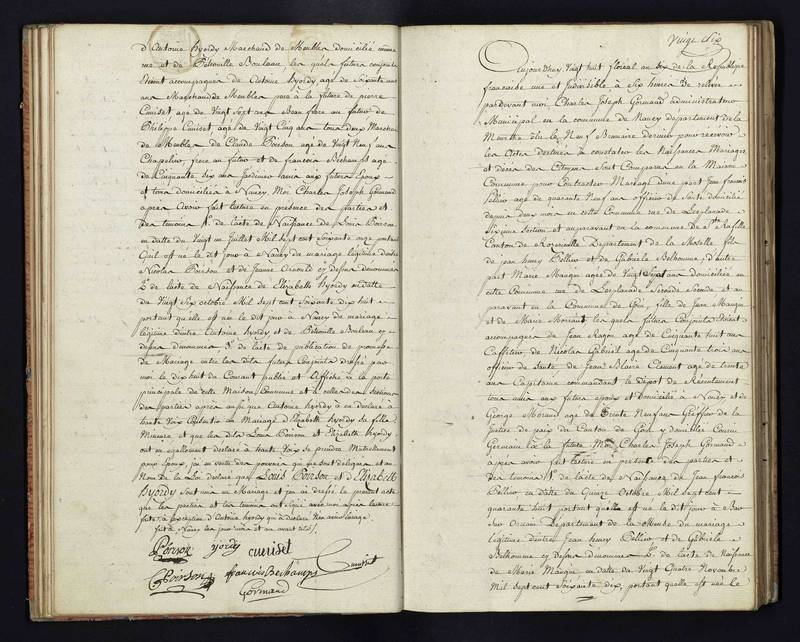 d'Antoine hyordy Marchand de Meubles domiciliée comme
eux et de Pétronille Bouleau les quels futurs conjoints
étaient accompagnés de Antoine hyordy agé de Soixante
ans Marchand de Meubles père à la future de pierre
Cuniset agé de Vingt sept ans Beau frère au futur de
Philippe Cuniset agé de Vingt Cinq ans tous deux Marchands
de Meubles de Claude Poirson agé de Vingt Neuf ans
Chapelier, frère au futur et de francois Bechamps agé
de Cinquante Six ans Jardinier amis aux futurs Epoux
et tous domiciliés à Nancy, Moi Charles Joseph Gormand
après avoir fait lecture en présence des parties et
des témoins 1°. de l'acte de Naissance de Louis Poirson
en datte du Vingt un Juillet Mil Sept cent Soixante onze portant
qu'il est né le dit jour à Nancy de mariage légitime d'entre
Nicolas Poirson et de Jeanne cy devant dénommés
2°. de l'acte de Naissance de Elizabeth hyordy en datte
du Vingt Six octobre Mil Sept cent Soixante dix huit
portant quelle est née le dit jour à Nancy de mariage
légitime d'entre Antoine hyordy et de Pétronille Bouleau cy
devant dénommés 3°. de l'acte de publication de promesse
de Mariage entre les dits futurs Conjoints dressé par
moi le dix huit de Courant publié et affiché à la porte
principale de cette Maison Commune et à celles des Sections
des parties après aussi que Antoine hyordy à eu déclaré à
haute Voix Consentir au Mariage d'Elizabeth hyordy sa fille
Mineure et que les dits Louis Poirson et Elizabeth hyordy
ont eu également déclaré à haute Voix se prendre Mutuellement
pour Epoux, j'ai en vertu des pouvoirs qui me sont délégués et au
Nom de la Loi déclaré que Louis Poirson et d'Elizabeth
hyordy sont unis en Mariage et j'ai dressé le présent acte
que les parties et les témoins ont signé avec moi après lecture
faite, à l'exception d'Antoine hyordy qui à déclaré
fait à Nancy les jour mois et an avant dits
Poirson hyordy cuniset
C Poirson françois Bechamps Cuniset
Gormand
Vingt Six
Aujourd'huy Vingt huit floréal an Six de la République
francaise une et Indivisible à Six heures de relevée
pardevant moi, Charles Joseph Gormand administrateur
Municipal en la commune de Nancy département de la
Meurthe élu le Neuf Brumaire dernier pour recevoir
les Actes destinés à constater les Naissances Mariages
et décès des Citoyens Sont Comparus en la Maison
Commune pour Contracter Mariage d'une part Jean francois
Pelliur agé de quarante Neuf ans officier de Santé domicilié
depuis deux mois en cette Commune rue de L'esplanade
Sixième Section et auparavant en la commune de Ste Rufille
Canton de Département de la Moselle fils
de jean henry Pelliur et de Gabriele Belhomme, d'autre
part Marie Maugin agée de Vingt Sept ans domiciliée en
cette Commune rue de L'esplanade Seconde et au
paravant en la Commune de Goin fille de Jean Maugin
et de Marie Morand les quels futurs Conjoints étaient
accompagnés de Jean Ragon agé de Cinquante huit ans
Caffetier de Nicolas Gabriel agé de Cinquante trois ans
officier de Santé de Jean Blaise Clément agé de trente
ans Capitaine commandant le Dépot de Recrutement
tous amis aux futurs epoux et domiciliés à Nancy et de
George Morand agé de trente Neuf ans Greffier de la
Justice de paix du Canton de Goin y domicilié Cousin
Germain à la future Moi, Charles Joseph Gormand
après avoir fait lecture en présence des parties et
des témoins 1°. de l'acte de Naissance de Jean francois
Pelliur en datte du Quinze Octobre Mil Sept cent
quarante huit portant qu'il est né le dit jour à Bar
Sur Ornain Departement de la Meuse du mariage
légitime d'entre Jean henry Pelliur et de Gabriele
Belhomme cy devant dénommés 2°. de l'acte de Naissance
de Marie Maugin en datte du Vingt Quatre Novembre
Mil Sept cent Soixante dix, portant quelle est née le